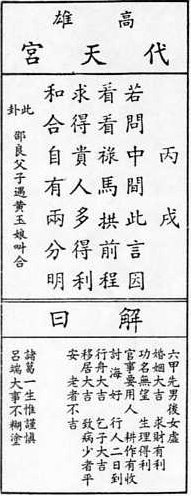 高雄
代天宮
丙戌
若問中間此言因
看看祿馬拱前程
求得貴人多得利
和合自有兩分明
此卦 邵良父子遇黃玉娘叫合
解曰
六甲先男後女虛
婚姻大吉 求財有利
功名無望 生理得利
官事要用人 耕作有收
討海好 行人二日到
行舟大吉 乞子大吉
移居大吉 致病少者平
安 老者不吉
諸葛一生惟謹慎
呂端大事不糊塗